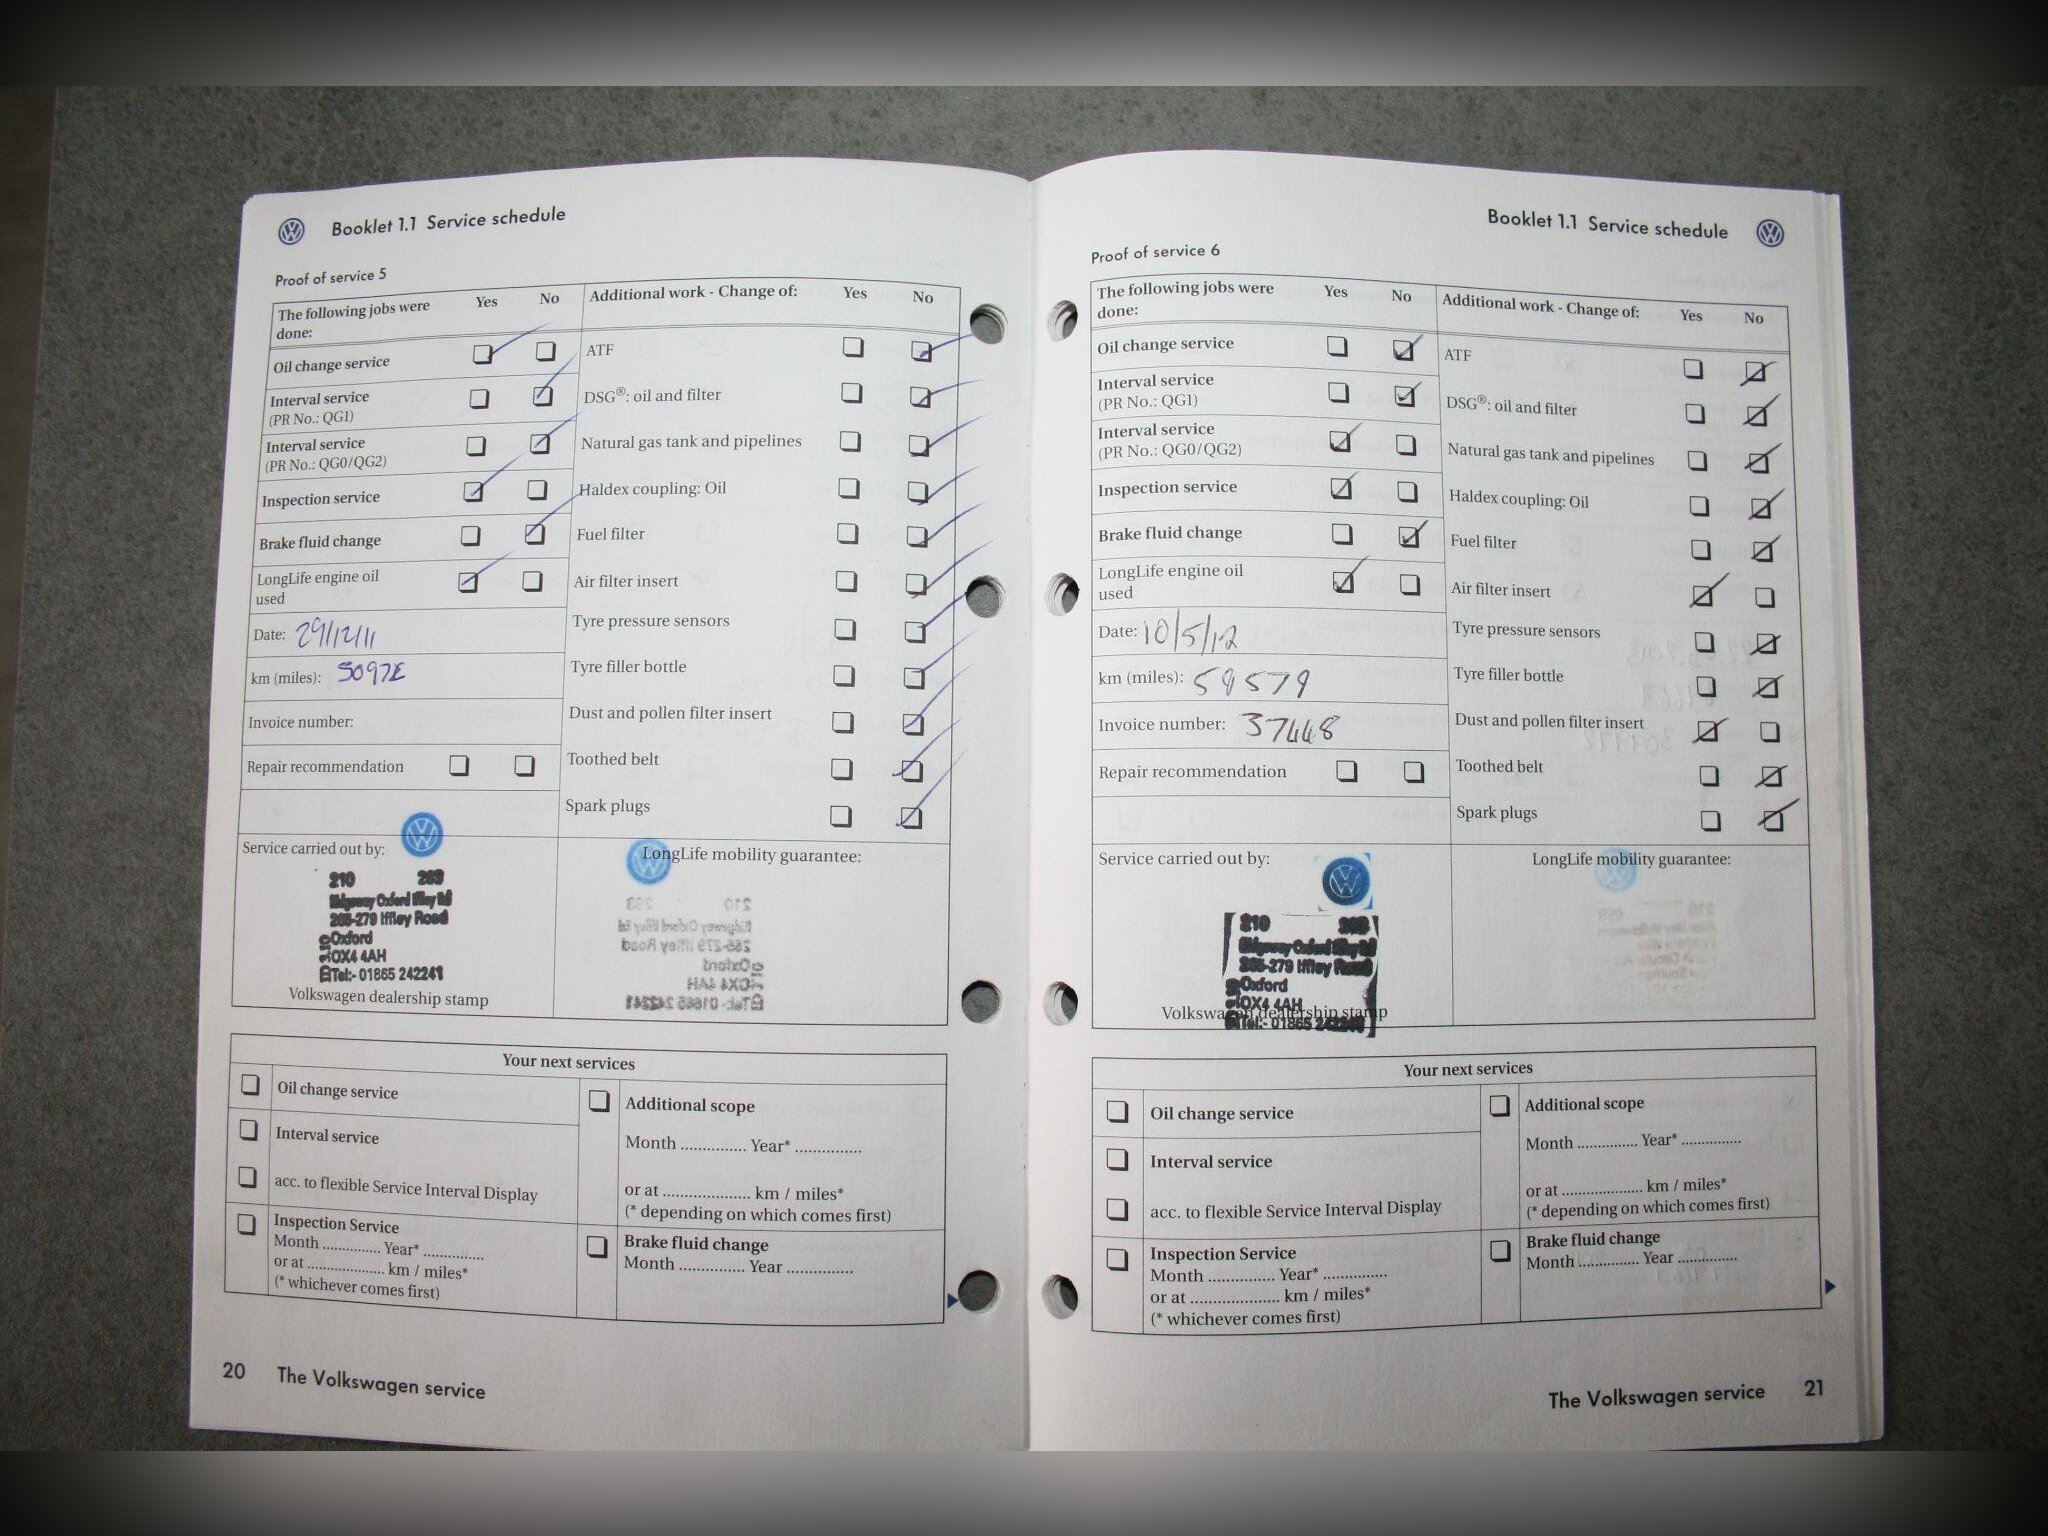 Booklet 1.1 Service schedule
Proof of service 5
The following jobs were done: Yes No
Oil change service
Interval service
(PR No.: QG1)
Interval service
(PR No.: QG0/QG2)
Inspection service
Brake fluid change
LongLife engine oil
used
Date: 29/12/11
km (miles):
Invoice number:
Repair recommendation
Additional work - Change of: Yes No
ATF
DSG®: oil and filter
Natural gas tank and pipelines
Haldex coupling: Oil
Fuel filter
Air filter insert
Tyre pressure sensors
Tyre filler bottle
Dust and pollen filter insert
Toothed belt
Spark plugs
Service carried out by:
210
Oxford Iffley
265-279 Iffley Road
Oxford
OX4 4AH
Tel:- 01865 242241
Volkswagen dealership stamp
LongLife mobility guarantee:
Your next services
Oil change service
Interval service
acc. to flexible Service Interval Display
Inspection Service
Month .............. Year* ..............
or at .................... km / miles*
(* whichever comes first)
Additional scope
Month ............... Year* ...............
or at .................... km / miles*
(* depending on which comes first)
Brake fluid change
Month ............... Year ...............
20 The Volkswagen service
Booklet 1.1 Service schedule
Proof of service 6
The following jobs were done: Yes No
Oil change service
Interval service
(PR No.: QG1)
Interval service
(PR No.: QG0/QG2)
Inspection service
Brake fluid change
LongLife engine oil
used
Date: 10/5/12
km (miles): 59579
Invoice number: 37448
Repair recommendation
Additional work - Change of: Yes No
ATF
DSG®: oil and filter
Natural gas tank and pipelines
Haldex coupling: Oil
Fuel filter
Air filter insert
Tyre pressure sensors
Tyre filler bottle
Dust and pollen filter insert
Toothed belt
Spark plugs
Service carried out by:
210
Oxford Iffley
265-279 Iffley Road
Oxford
OX4 4AH
Tel:- 01865 242241
Volkswagen dealership stamp
LongLife mobility guarantee:
Your next services
Oil change service
Interval service
acc. to flexible Service Interval Display
Inspection Service
Month ............... Year* ...............
or at .................... km / miles*
(* whichever comes first)
Additional scope
Month .............. Year* ..............
or at .................... km / miles*
(* depending on which comes first)
Brake fluid change
Month .............. Year ..............
The Volkswagen service 21